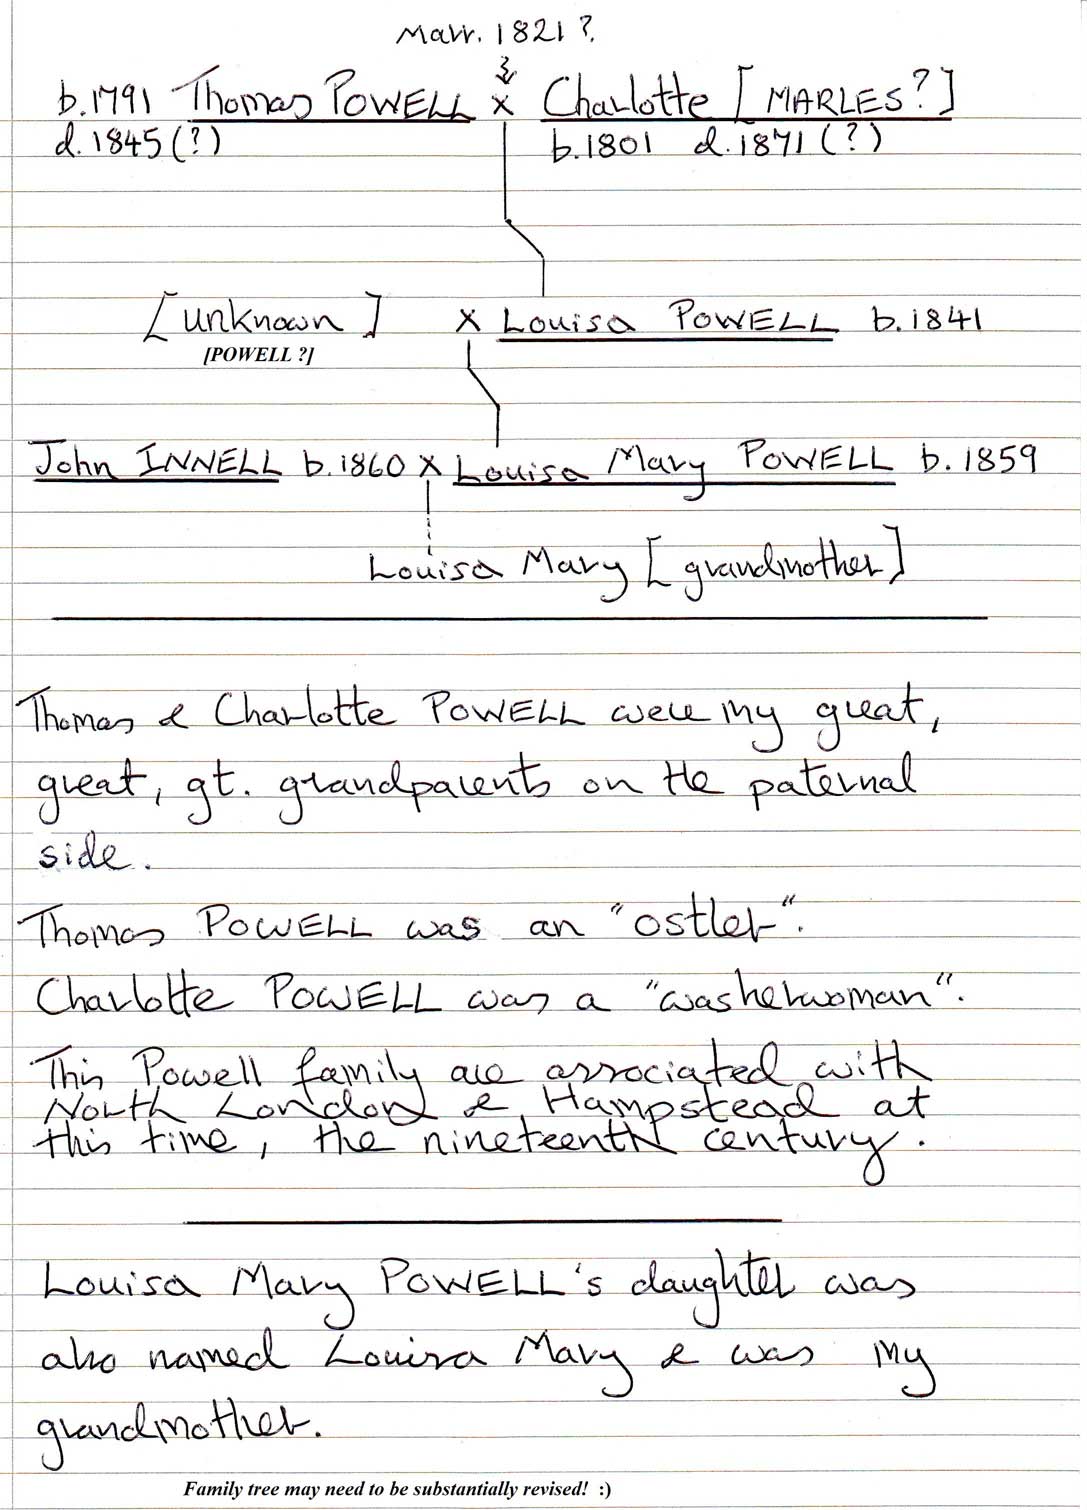 Marr. 1821?
b.1791 Thomas POWELL x Charlotte [MARLES?]
d.1845(?) b.1801 d.1871(?)
[unknown] x Louisa POWELL b.1841
[POWELL ?]
John INNELL b.1860 x Louisa Mary POWELL b.1859
Louisa Mary [grandmother]
Thomas & Charlotte POWELL were my great,
great, gt. grandparents on the paternal
side.
Thomas POWELL was an "ostler".
Charlotte POWELL was a "washerwoman".
This Powell family are associated with
North London & Hampstead at
this time, the nineteenth century.
Louisa Mary POWELL's daughter was
also named Louisa Mary & was my
grandmother.
Family tree may need to be substantially revised! :)